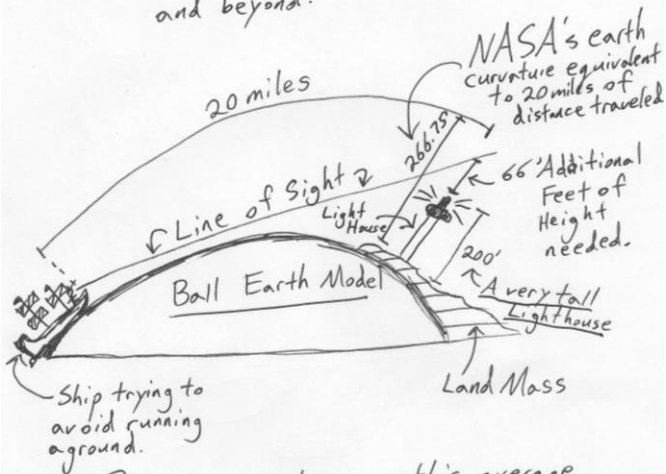 and beyond.
NASA's earth
curvature equivalent
to 20 miles of
distance traveled
20 miles
266.75'
Line of Sight
66' Additional
Feet of
Height
needed.
Light
House
200'
Ball Earth Model
A very tall
Lighthouse
Land Mass
Ship trying to
avoid running
aground.
this average